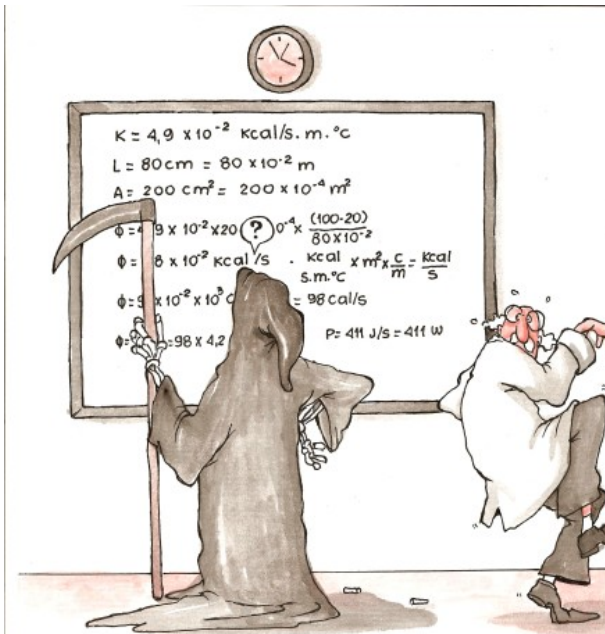 K = 4,9 x 10⁻² Kcal/s.m.°C
L = 80 cm = 80 x 10⁻² m
A = 200 cm² = 200 x 10⁻⁴ m²
ϕ = 9 x 10⁻² x 20 0⁻⁴ x (100-20)/80x10⁻²
?
ϕ = 8 x 10⁻² Kcal/s . Kcal/s.m.°C x m² x c/m = Kcal/s
ϕ = 9 x 10⁻² x 10³ c = 98 cal/s
ϕ = = 98 x 4,2 P = 411 J/s = 411 W